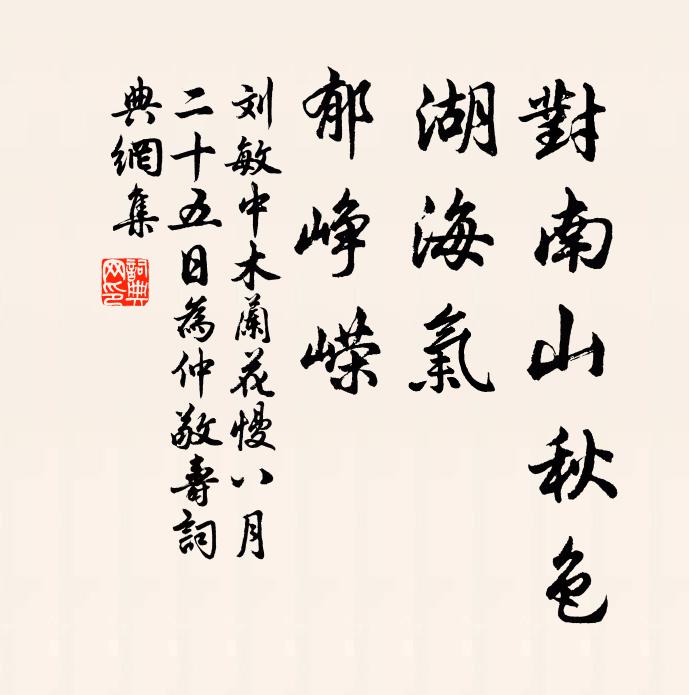 對南山秋色
湖海氣
郁峥嵘
刘敏中木蘭花慢八月
二十五日為仲敬壽詞
典網集
詞典
网印